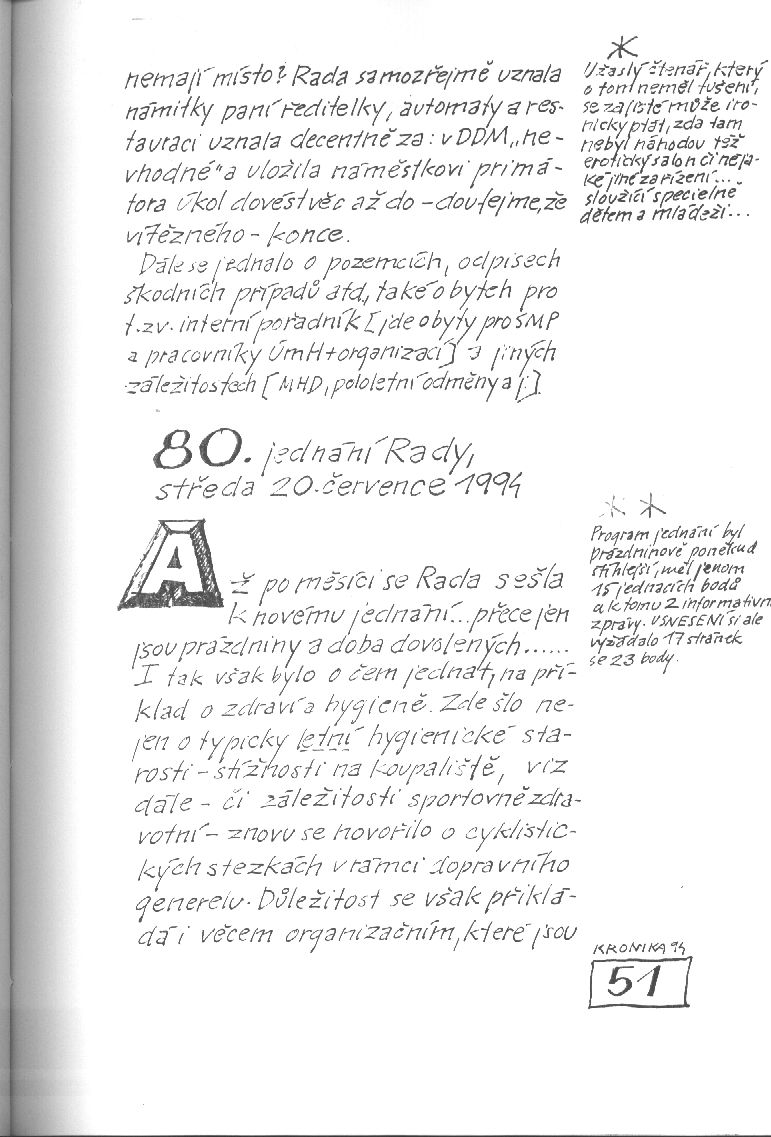 nemají místo? Rada samozřejmě uznala
námitky paní ředitelky, automaty a res-
tauraci uznala decentně za: v DDM „ne-
vhodné" a uložila náměstkovi primá-
tora úkol dovést věc až do – doufejme, že
vítězného – konce.
Dále se jednalo o pozemcích, odpisech
škodních případů atd, také o bytech pro
t.zv. interní pořadník [jde o byty pro SMP
a pracovníky ÚmH + organizací] a jiných
záležitostech [MHD, pololetní odměny a j.].
*
Užaslý čtenář, který
o tom neměl tušení,
se zajisté může iro-
nicky ptát, zda tam
nebyl náhodou též
erotický salon či neja-
ké jiné zařízení...
sloužící specielně
dětem a mládeži...
80. jednání Rady,
středa 20. července 1994
Až po měsíci se Rada sešla
k novému jednání... přece jen
jsou prázdniny a doba dovolených......
I tak však bylo o čem jednat, na pří-
klad o zdraví a hygieně. Zde šlo ne-
jen o typicky letní hygienické sta-
rosti – stížnosti na koupaliště, viz
dále – či záležitosti sportovně zdra-
votní – znovu se hovořilo o cyklistic-
kých stezkách v rámci dopravního
generelu. Důležitost se však přiklá-
dá i věcem organizačním, které jsou
* *
Program jednání byl
prázdninově poněkud
štíhlejší, měl jenom
15 jednacích bodů
a k tomu 2 informativn.
zprávy. USNESENÍ si ale
vyžádalo 17 stránek
se 23 body.
KRONIKA 94
51